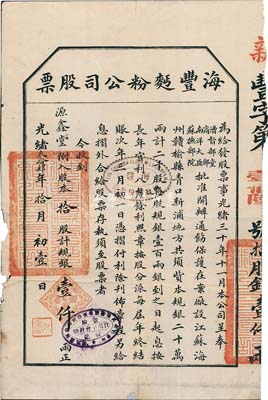 海豐麪粉公司股票
為給發股票事光緒三十年十月本公司呈奉
商部
漕督部堂
南洋大臣
蘇撫部院
批准開辦通飭保護在案厰設江蘇海
州贛榆縣青口新浦地方共須資本規銀二十萬
兩計二千股每股規銀壹百兩銀到之日起息按
長年官利
餘利照章按股分派每届年終結
賬次年三月初一日憑摺付利除刋佈章程另給
息摺外合給股票存執須至股票者
今收到
源鑫堂附股本拾股計規銀壹仟兩正
光緒年拾月初壹日
豐字第
號拾股銀壹仟兩